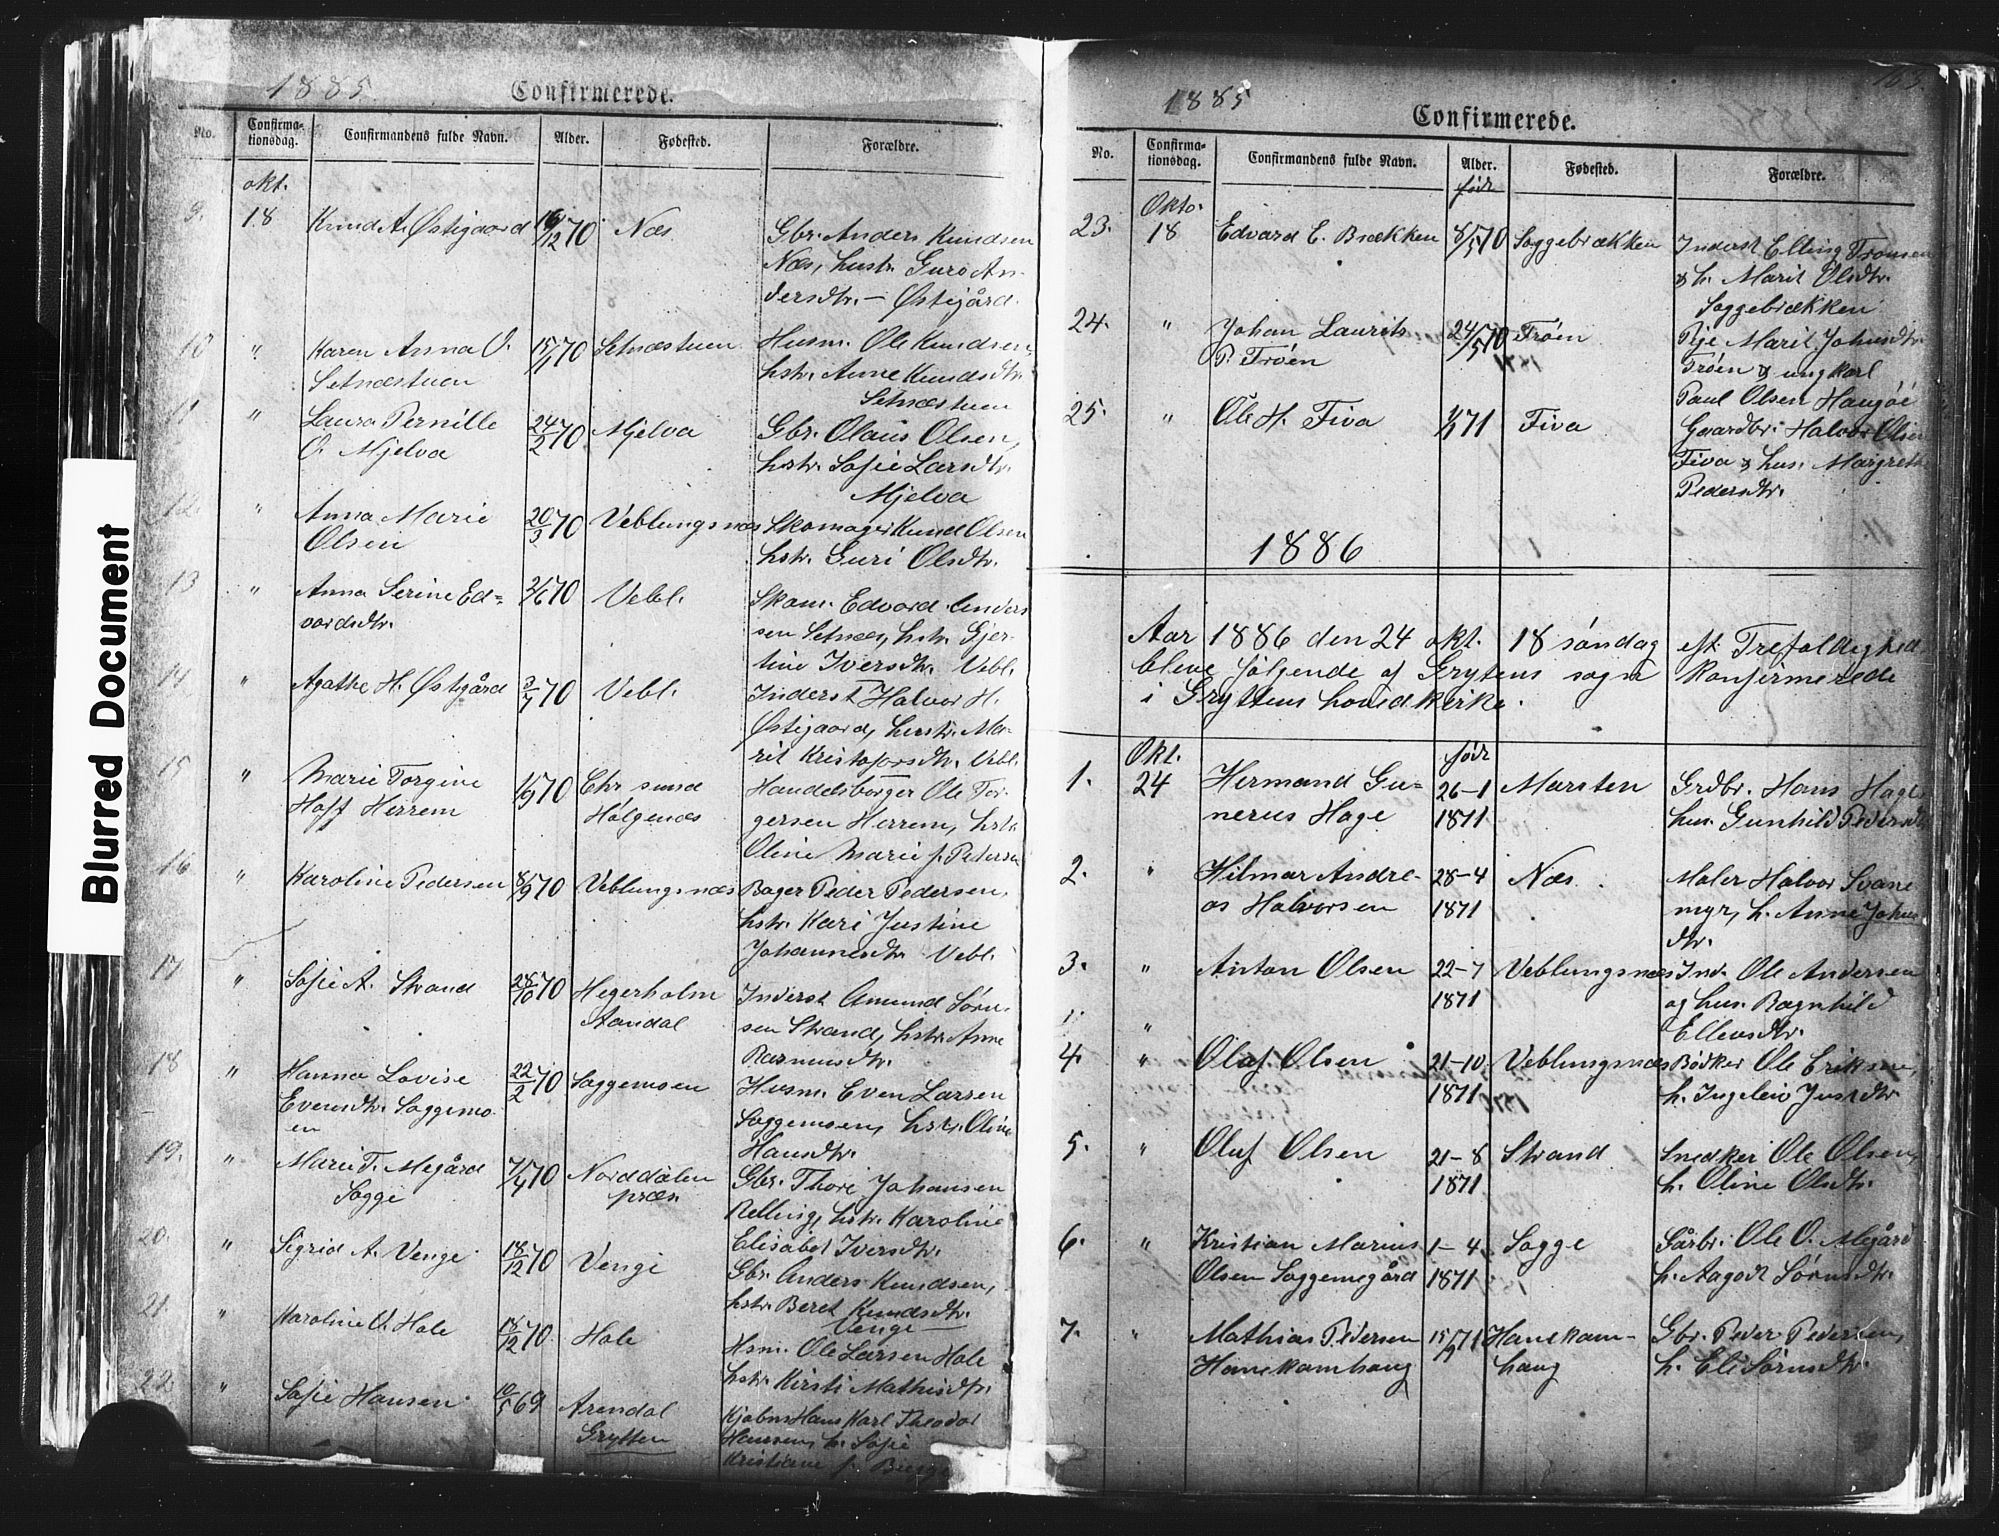 Blurred Document
1885
Confirmerede.
No.
Confirma-
tionsdag.
Confirmandens fulde Navn.
Alder.
Fødested.
Forældre.
okt.
9. 18 Knud A. Østigaard 16/12 70 Næs Gbr. Anders Knudsen
Næs, hustr. Guro An-
dersdtr. – Østigård
10 " Karen Anna O. 15/1 70 Setnæstuen Husm. Ole Knudsen,
Setnæstuen hstr. Anne Knudsdtr.
Setnæstuen
11 " Laura Pernille 24/2 70 Mjelva Gbr. Olaus Olsen,
O. Mjelva hstr. Sofie Larsdtr.
Mjelva
12. " Anna Marie 20/3 70 Veblungsnæs Skomager Knud Olsen
Olsen hstr. Guri Olsdtr.
13 " Anna Serine Ed- 2/6 70 Vebl. Skom. EdvardAnder-
vardsdtr. sen Setnæs, hstr. Gjer-
tine Iversdtr. Vebl.
14 " Agathe H. Østigård 3/7 70 Vebl. Inderst Halvor H.
Østigaard, hustr. Ma-
rit Kristofersdtr. Vebl.
15 " Marie Torgine 1/9 70 Chr sund Handelsborger Ole Tor-
Hoff Herrem Holgenæs gersen Herrem, hstr.
Oline Marie f. Petersen
16 " Karoline Pedersen 8/9 70 Veblungsnæs Bager Peder Pedersen,
hstr. Kari Justine
Johannesdtr. Vebl.
17 " Sofie A. Strand 28/10 70 Hegerholm Inderst Amund Søren-
Aandal sen Strand, hstr. Anne
Rasmusdtr.
18 " Hanna Lovise 22/2 70 Soggemoen Husm. Even Larsen
Evensdtr. Soggemo- Soggemoen, hstr. Oline
en Hansdtr.
19. " Marie T. Megård 7/4 70 Norddalen Gbr. Thore Johansen
Sogge præs. Relling, hstr. Karoline
Elisabet Iversdtr.
20. " Sigrid A. Venge 18/12 70 Venge Gbr. Anders Knudsen,
hstr. Beret Knudsdtr.
Venge
21. " Karoline O. Hole 18/12 70. Hole Hsm. Ole Larsen Hole
hstr. Kirsti Mathisdtr.
22 " Sofie Hansen 10/5 69 Arendal Kjøbm Hans Karl Theodor
Grytten Hansen, h. Sofie
Kristiane f.
1885
Confirmerede.
No.
Confirma-
tionsdag.
Confirmandens fulde Navn.
Alder.
født
Fødested.
Forældre.
Okto.
23. 18 Edvard E. Brækken 8/5 70 Soggebrækken Inderst Elling Tronsen
& h. Marit Olsdtr.
Soggebrækken
24. " Johan Laurits 24/5 70 Trøen Pige Marit Johnsdtr.
P. Trøen Trøen & ungkarl
Paul Olsen Haugøe
25. " Ole H. Fiva 1/1 71 Fiva Gaardbr. Halvor Olsen
Fiva & hus. Margrete
Pedersdtr.
1886
Aar 1886 den 24 okt. 18 søndag eft. Trefoldighed
bleve følgende af Gryttens sogn konfirmerede
i Gryttens hovedkirke.
Okt. født
1. 24 Hermand Gu- 26-1 Marsten Grdbr. Hans Hage
nerus Hage 1871 hus. Gunhild Pedersdtr
2. " Hilmar Andre- 28-4 Næs. Maler Halvor Svane
as Halvorsen 1871 myr, h. Anne Johns
dtr.
3. " Anton Olsen 22-7 Veblungsnæs Ind. Ole Andersen
1871 og hus. Ragnhild
" Ellensdtr.
4. " Olaf Olsen 21-10 Veblungsnæs Bødker Ole Eriksen,
1871 h. Ingeleiv Justdtr
5. " Oluf Olsen 21-8 Strand Snedker Ole Olsen,
1871 h. Oline Olsdtr.
6. " Kristian Marius 1-4 Sogge Gårbr. Ole O. Megård
Olsen Soggemegård 1871 h. Aagodt Sørensdtr.
7. " Mathias Pedersen 15/9 71 Hanekam- Gbr. Peder Pedersen,
Hanekamhaug haug h. Eli Sørensdtr.